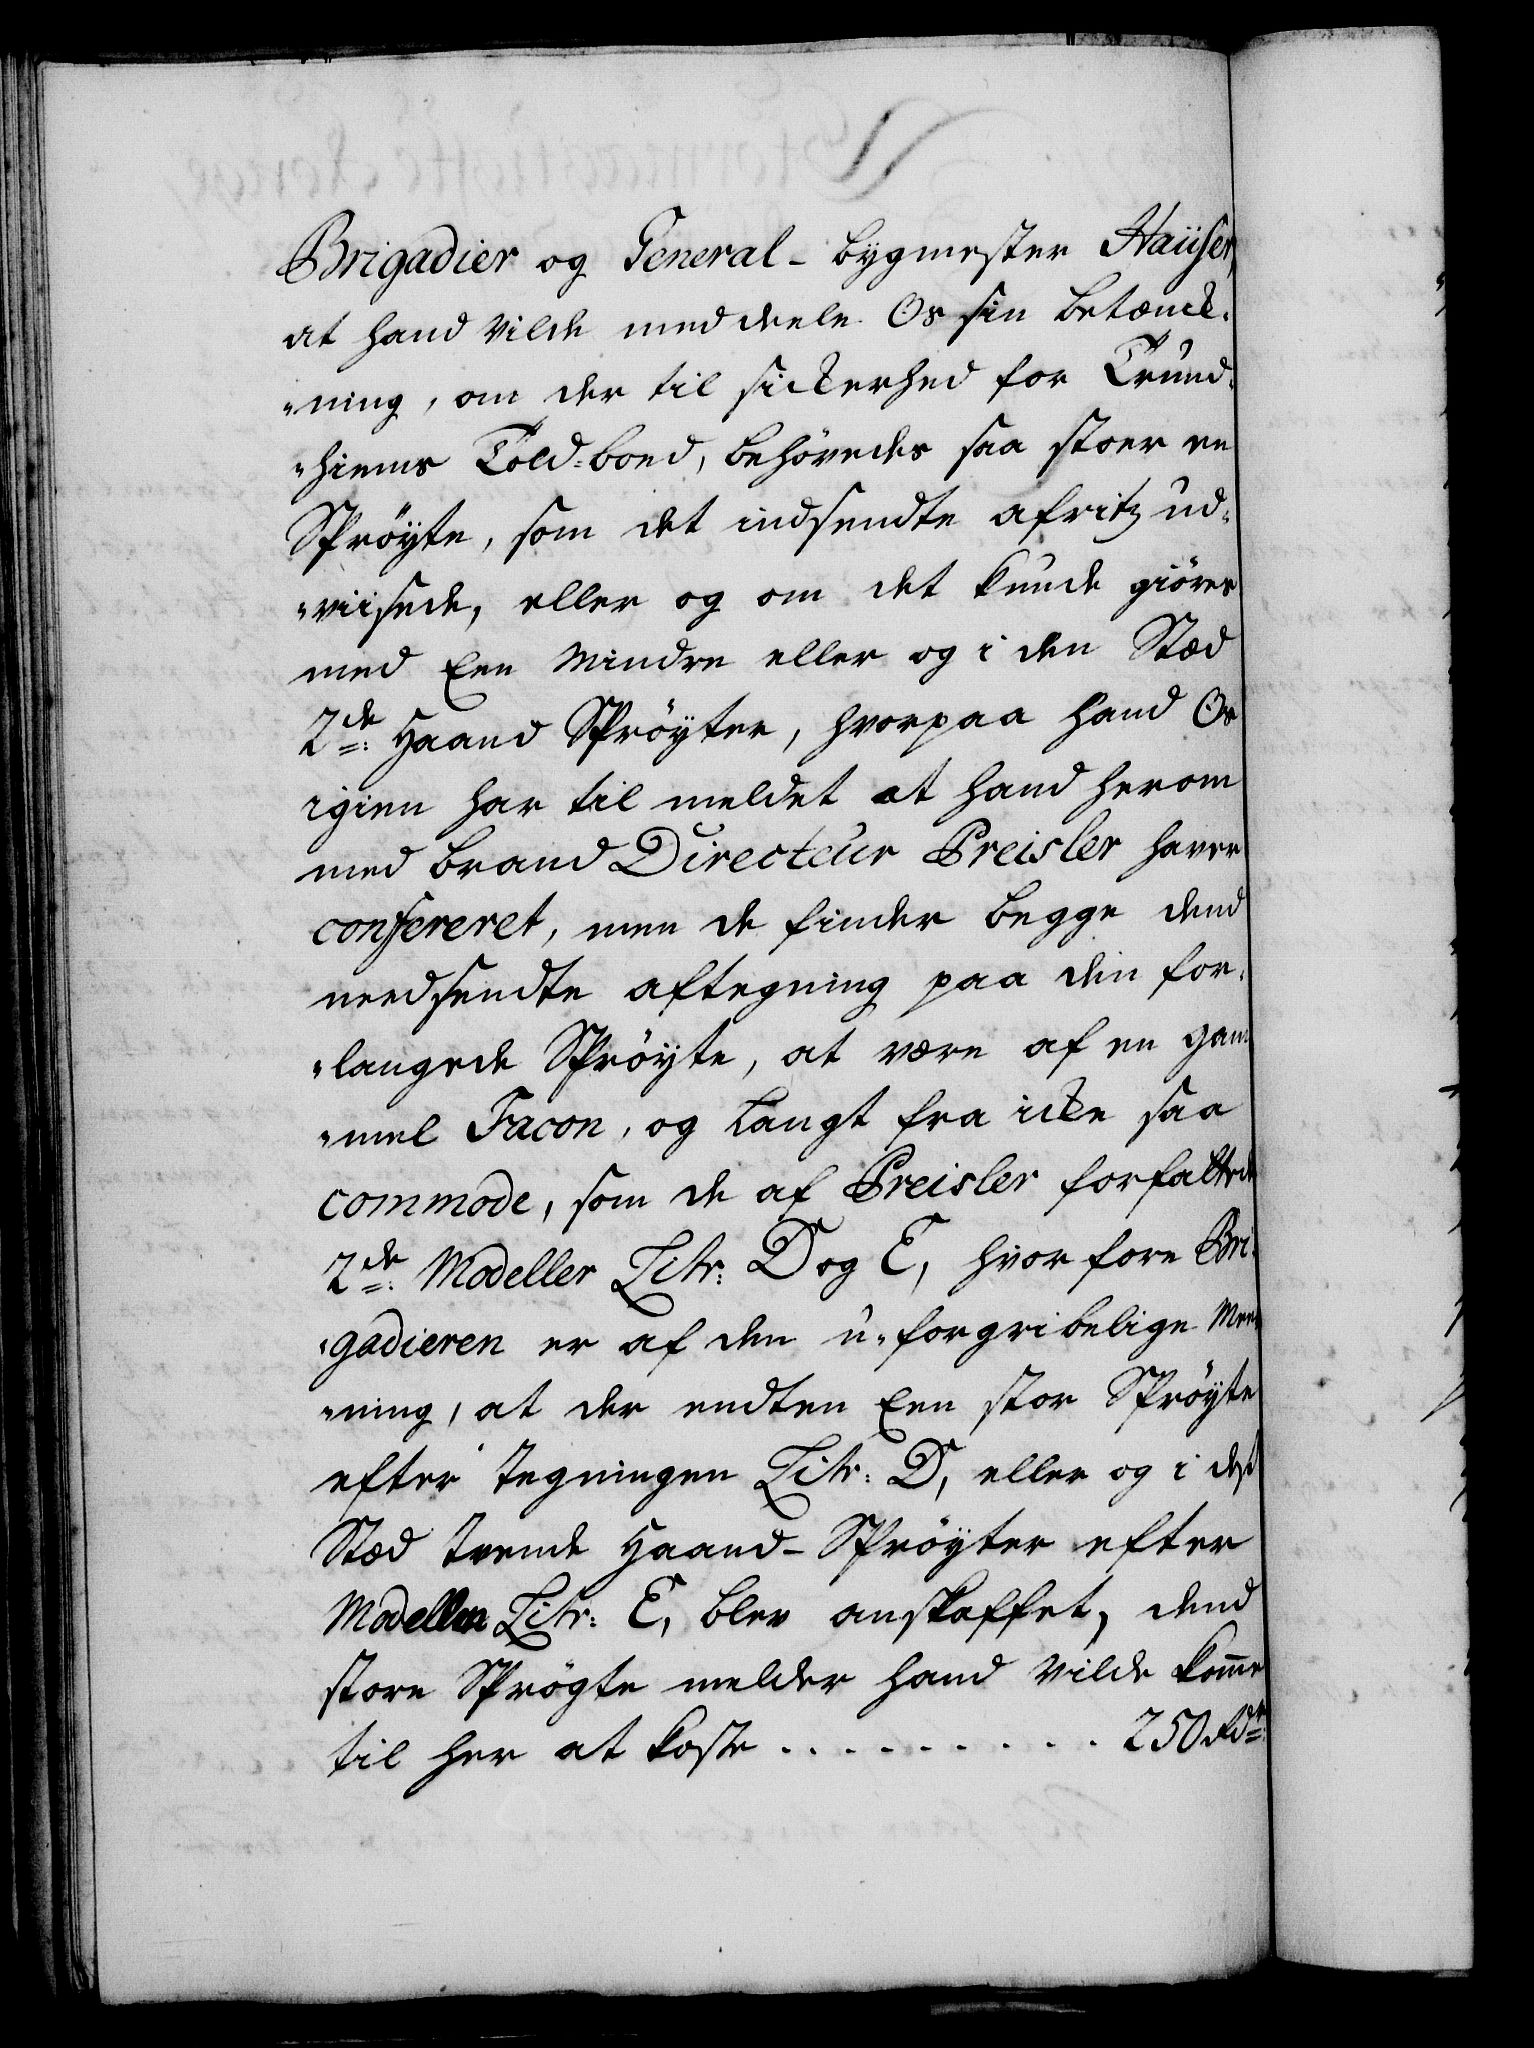 Brigadier og General-bygmester Haüser,
at hand vilde meddeele Os sin betænck-
"ning, om der til sickerhed for Trund-
"hiems Told-boed, behövedes saa stoer en
Spröyte, som det indsendte afritz ud-
"viisede, eller og om det kunde giöres
med Een Mindre eller og i den Stæd
2de: Haand Spröyter, hvorpaa hand Os
igien har til meldet at hand herom
med brand Directeur Preisler haver
confereret, men de finder begge dend
needsendte aftegning paa din for-
"langede Spröyte, at være af en gam-
"mel Facon, og langt fra icke saa
commode, som de af Preisler forfattede
2de: Modeller Litr: D og E, hvorfore Bri-
"gadieren er af den u-forgribelige Mee-
"ning, at der endten Een stor Spröyte
efter Tegningen Litr: D, eller og i dest
Stæd trende Haand-Spröyter efter
Modellen Litr: E, blev anskaffet, dend
store Spröyte melder hand vilde komme
til her at koste . . . . . . . . . . 250 Rdr: